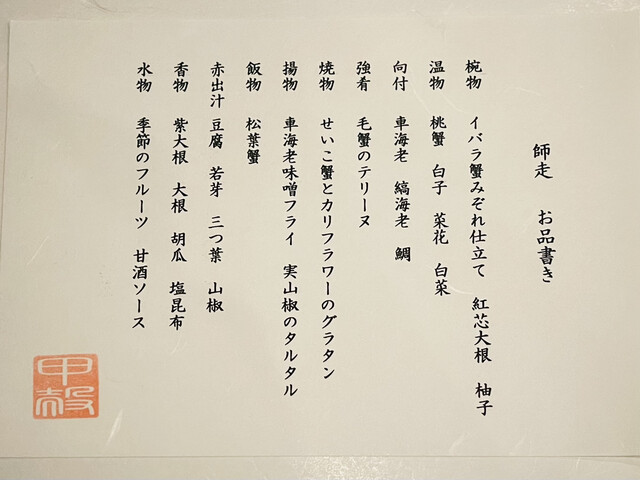 師走　お品書き
椀物　イバラ蟹みぞれ仕立て　紅芯大根　柚子
温物　桃蟹　白子　菜花　白菜
向付　車海老　縞海老　鯛
強肴　毛蟹のテリーヌ
焼物　せいこ蟹とカリフラワーのグラタン
揚物　車海老味噌フライ　実山椒のタルタル
飯物　松葉蟹
赤出汁　豆腐　若芽　三つ葉　山椒
香物　紫大根　大根　胡瓜　塩昆布
水物　季節のフルーツ　甘酒ソース
甲殻